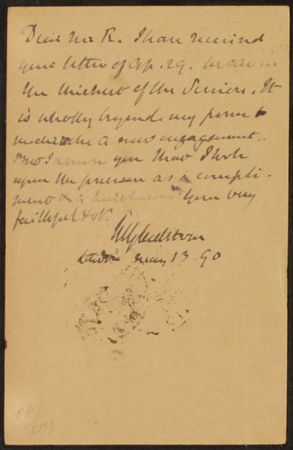 Dear Mr R. I have received
your letter of Ap. 29. 
the thickest of the Session. It
is wholly beyond my power to
undertake a new engagement.
I assure you that I look
upon the as a compli-
ment & a kindness Yours very
faithful &c.
WEGladstone
London May 13. 90